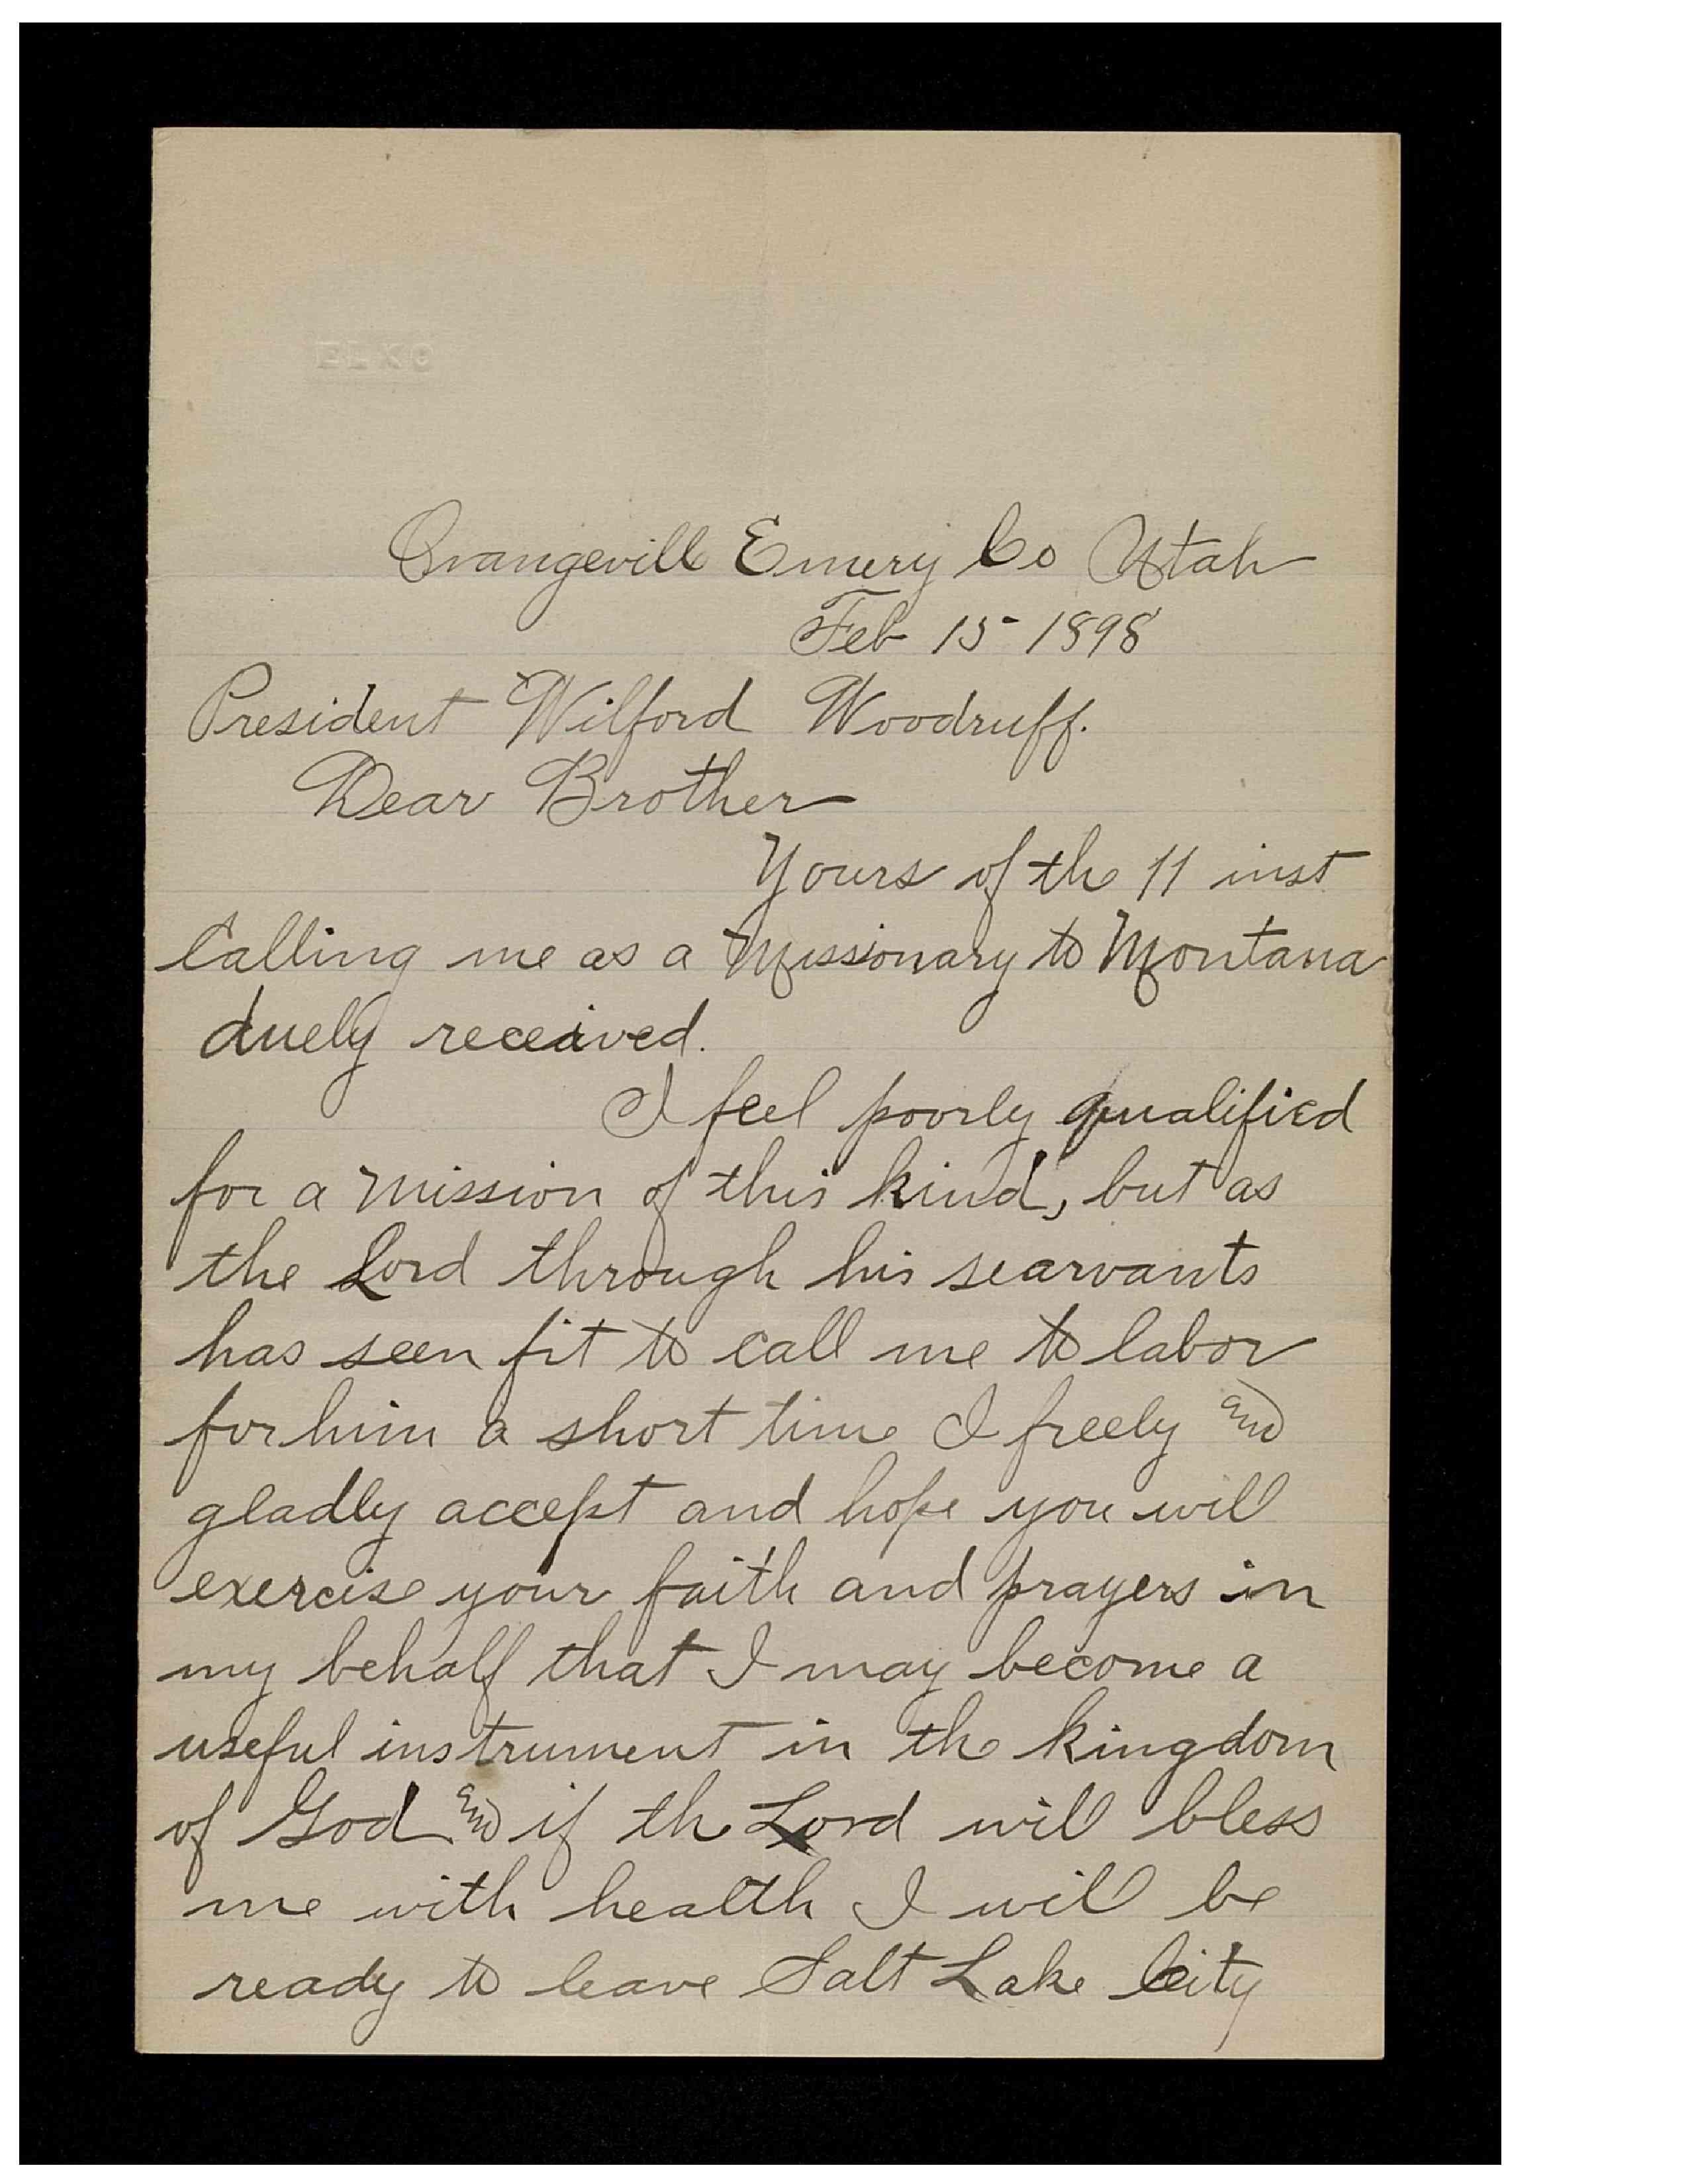 ELKO
Orangevill Emery Co Utah
Feb 15 1898
President Wilford Woodruff.
Dear Brother
Yours of the 11 inst
Calling me as a Missionary to Montana
duely received.
I feel poorly qualified
for a mission of this kind, but as
the Lord through his searvants
has seen fit to call me to labor
for him a short time I freely and
gladly accept and hope you will
exercise your faith and prayers in
my behalf that I may become a
useful instrument in the kingdom
of God and if the Lord will bless
me with health I will be
ready to leave Salt Lake City